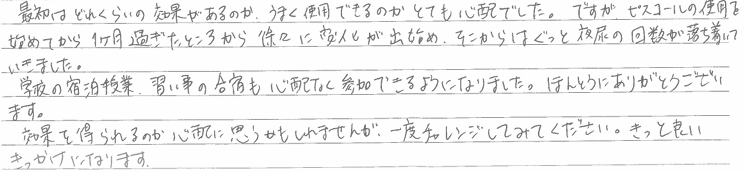 最初はどれくらいの効果があるのか、うまく使用できるのかとても心配でした。ですが、ピスコールの使用を
始めてから1ヶ月過ぎたところから徐々に変化が出始め、そこからはぐっと夜尿の回数が落ち着いて
いきました。
学校の宿泊授業、習い事の合宿も心配なく参加できるようになりました。ほんとうにありがとうござい
ます。
効果を得られるのか心配に思うかもしれませんが、一度チャレンジしてみてください。きっと良い
きっかけになります。